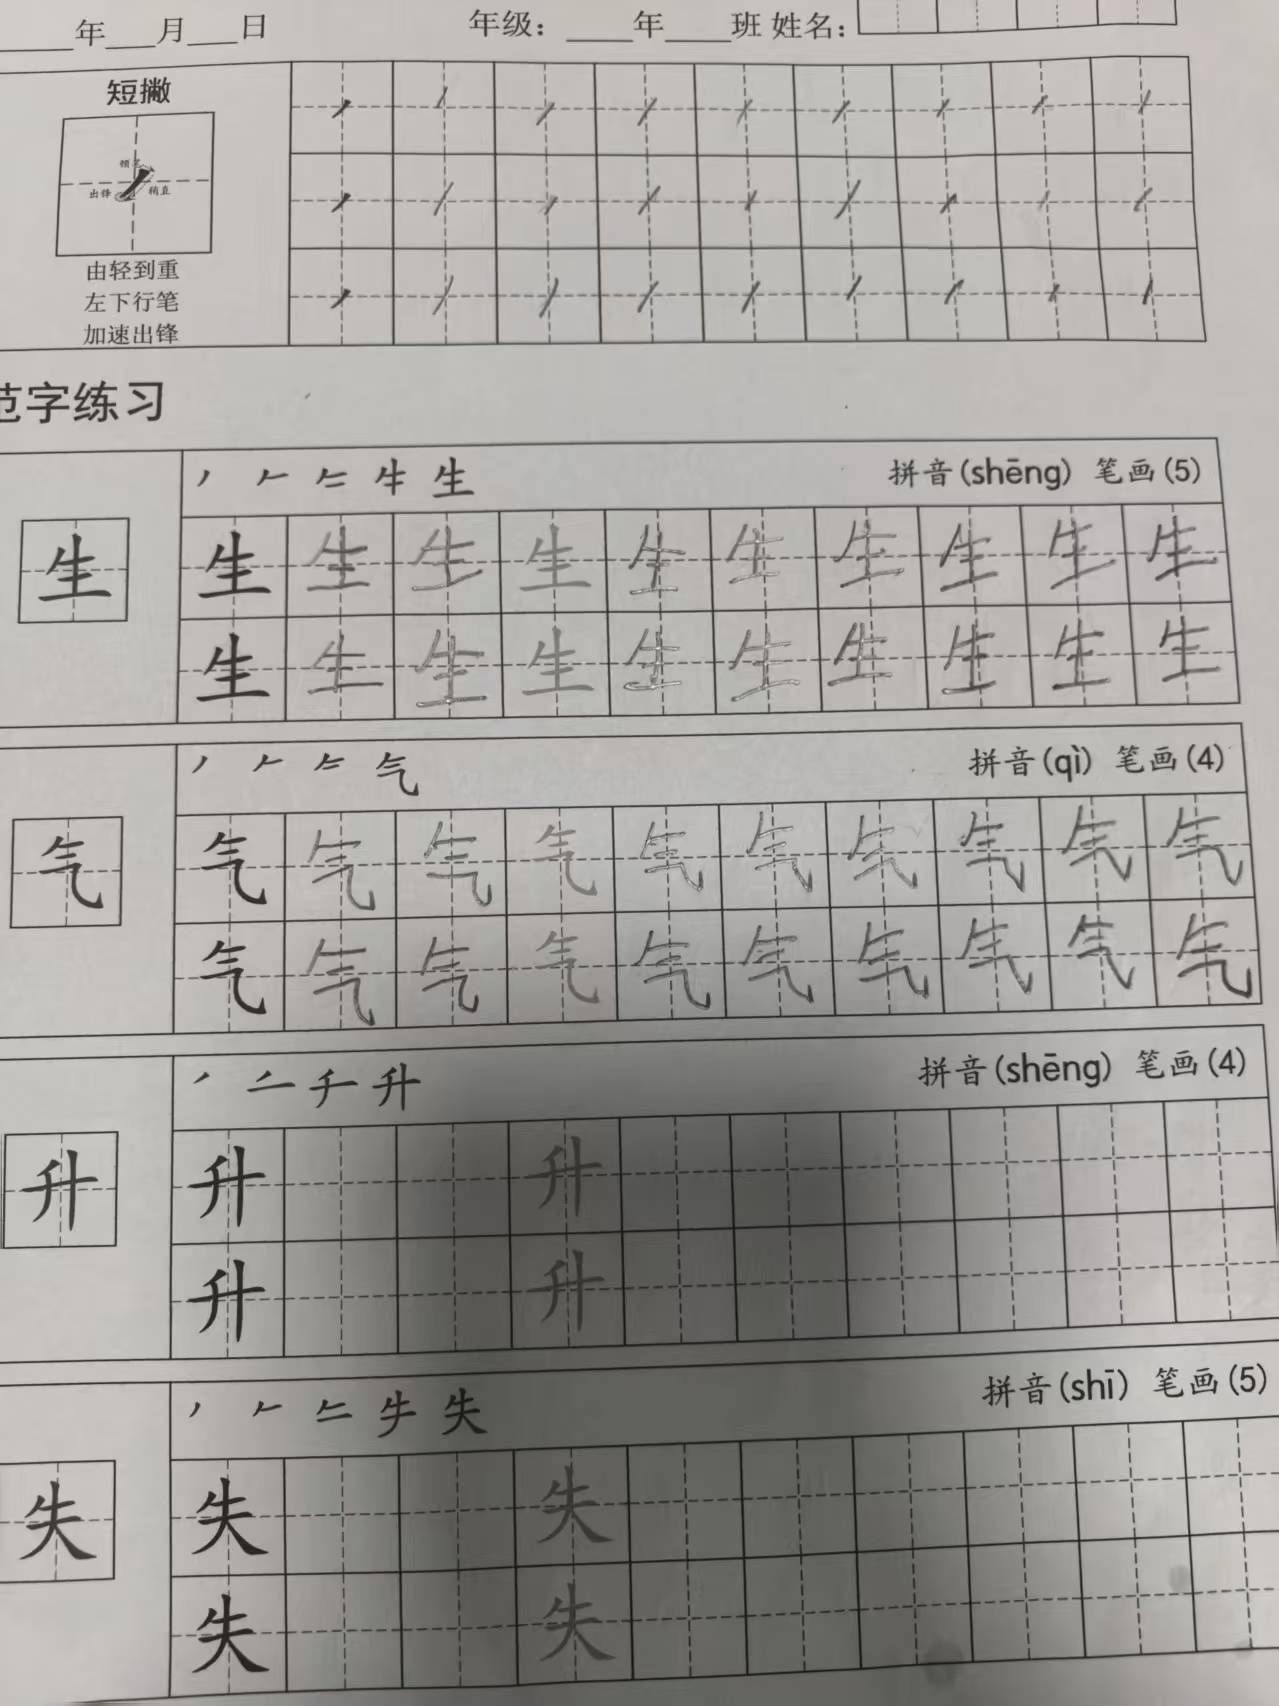 年 月 日 年级： 年 班 姓名：
短撇
领笔
出锋 稍直
由轻到重
左下行笔
加速出锋
范字练习
拼音(shēng) 笔画(5)
生 生 生 生 生 生 生 生 生 生 生
生 生 生 生 生 生 生 生 生 生
拼音(qì) 笔画(4)
气 气 气 气 气 气 气 气 气 气 气
气 气 气 气 气 气 气 气 气 气
升 拼音(shēng) 笔画(4)
升 升 升
升 升
失 拼音(shī) 笔画(5)
失 失 失
失 失